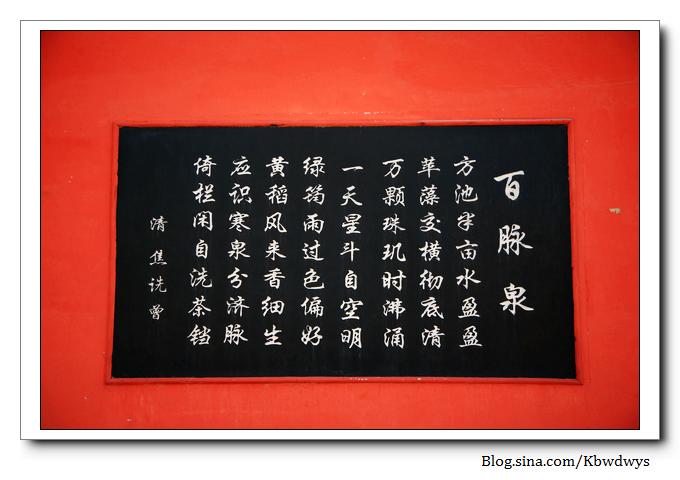 百脉泉
方池半亩水盈盈
苹藻交横彻底清
万颗珠玑时沸涌
一天星斗自空明
绿筠雨过色偏好
黄稻风来香细生
应识寒泉分济脉
倚栏闲自洗茶铛
清 焦诜曾
Blog.sina.com/Kbwdwys